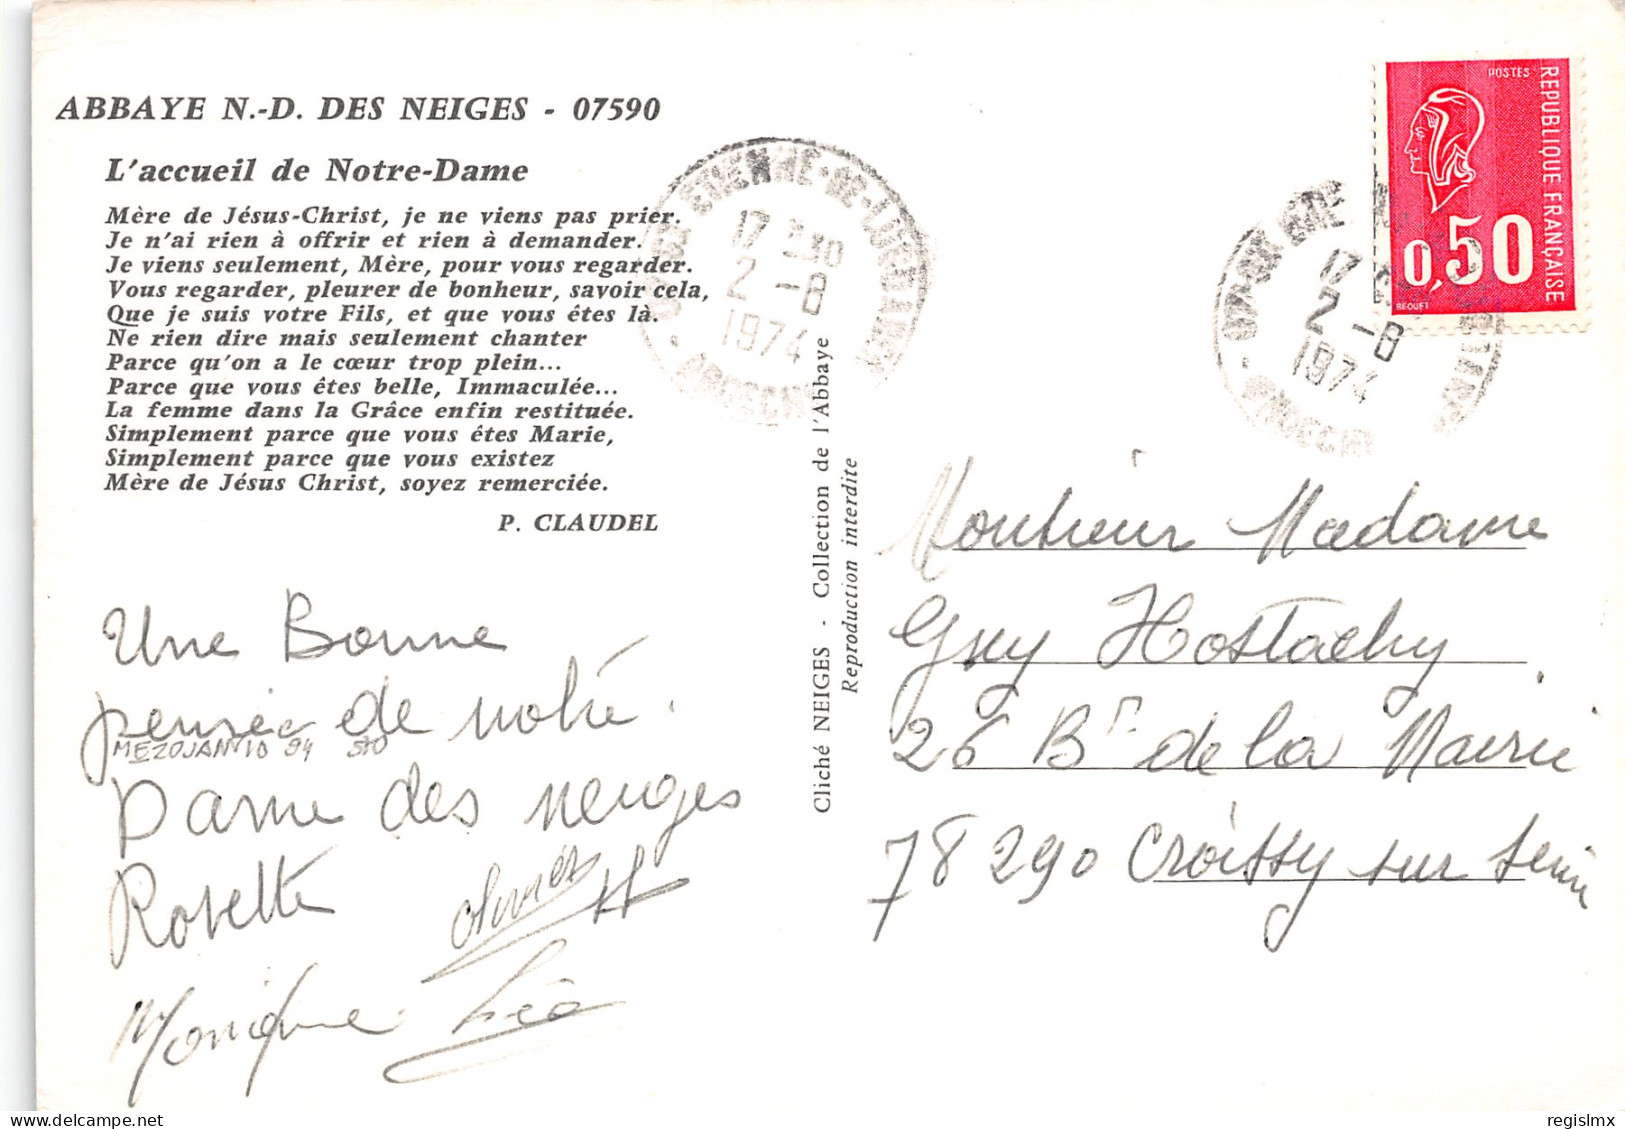 ABBAYE N.-D. DES NEIGES - 07590
L'accueil de Notre-Dame
Mère de Jésus-Christ, je ne viens pas prier.
Je n'ai rien à offrir et rien à demander.
Je viens seulement, Mère, pour vous regarder.
Vous regarder, pleurer de bonheur, savoir cela,
Que je suis votre Fils, et que vous êtes là.
Ne rien dire mais seulement chanter
Parce qu'on a le cœur trop plein...
Parce que vous êtes belle, Immaculée...
La femme dans la Grâce enfin restituée.
Simplement parce que vous êtes Marie,
Simplement parce que vous existez
Mère de Jésus Christ, soyez remerciée.
P. CLAUDEL
Une Bonne
pensée de notre
MEZOJAN 10 94 STO
Dame des neiges
Rosette
Monique Léo
Cliché NEIGES - Collection de l'Abbaye
Reproduction interdite
17 H 30
2 - 8
1974
ARDECHE
POSTES
REPUBLIQUE FRANÇAISE
0,50
BEQUET
17
2 - 8
1974
ARDECHE
Monsieur Madame
Guy Hostachy
26 Bd de la Mairie
78 290 Croissy sur Seine
delcampe.net
regislmx